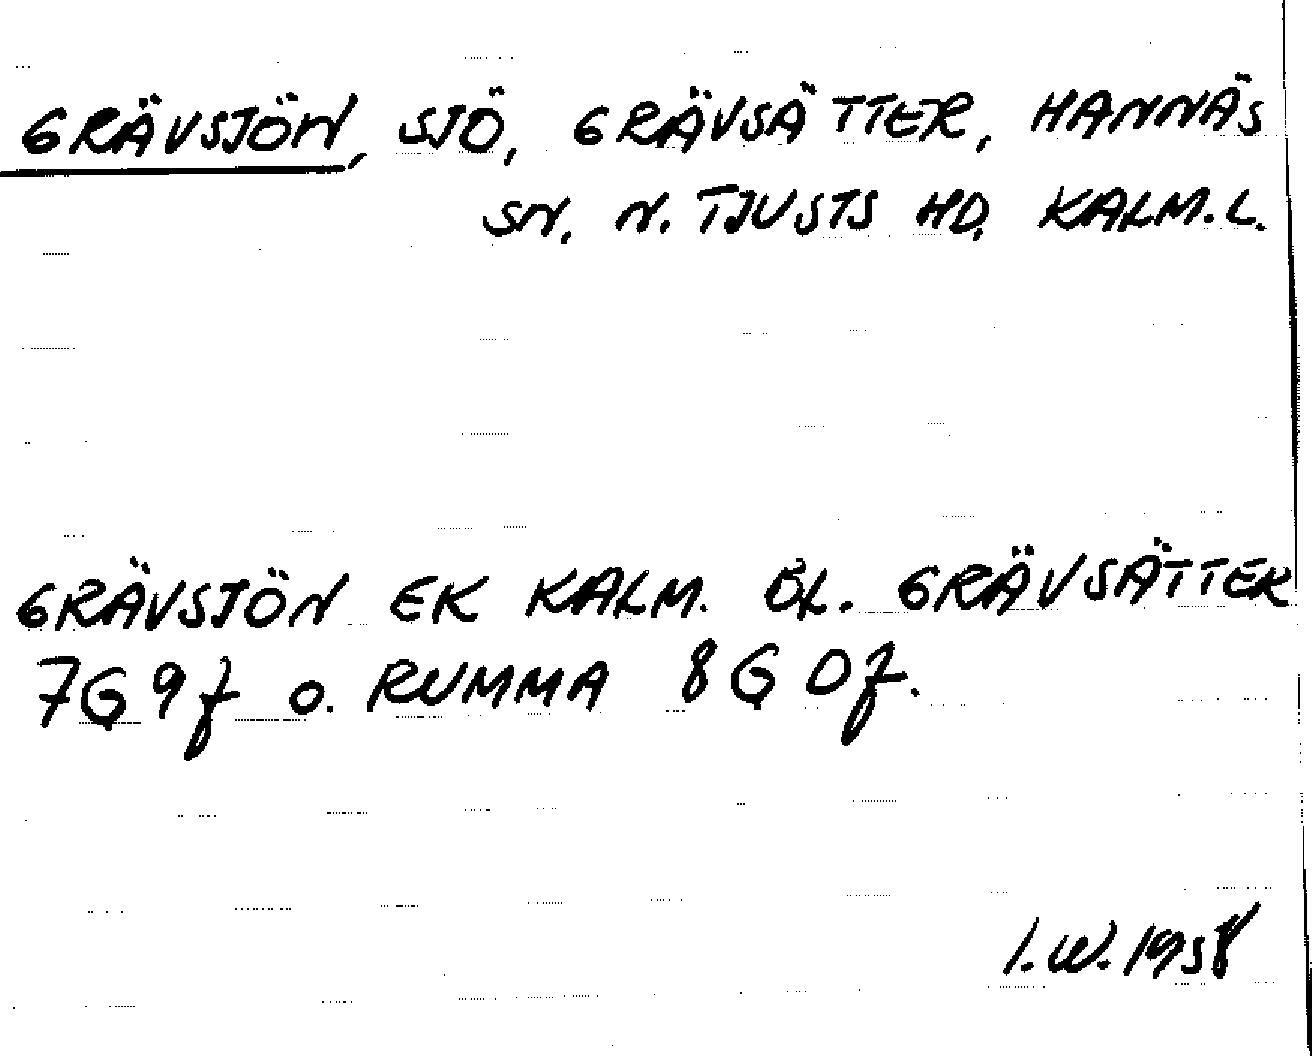 GRÄVSJÖN, SJÖ, GRÄVSÄTTER, HANNÄS
SN. N. TJUSTS HD. KALM. L.
GRÄVSJÖN EK KALM. BL. GRÄVSÄTTER
7G 9f o. RUMMA 8G 0f.
I.W. 1958